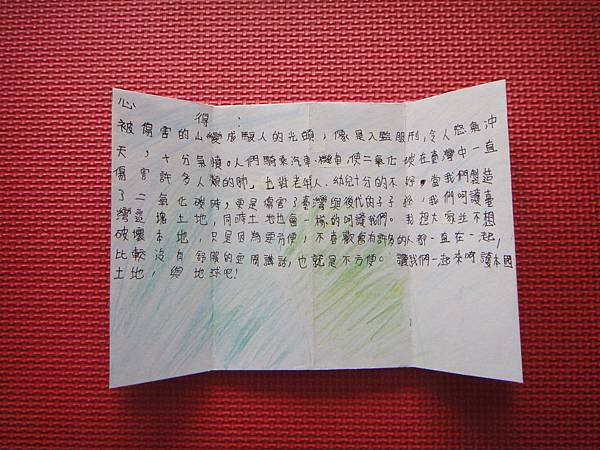 心得：
被傷害的山變成駭人的光頭，像是入監服刑，令人怒氣沖
天，十分氣憤。人們騎乘汽車、機車，使二氧化碳在臺灣中一直
傷害許多人類的肺，也對老年人、幼兒十分的不好。當我們製造
了二氧化碳時，更是傷害了臺灣與後代的子子孫，我們呵護臺
灣這塊土地，同時土地也會一樣的呵護我們。我想大家並不想
破壞本地，只是因為要方便，不喜歡會有許多的人都一直在一起，
比較沒有舒服的空間講話，也就是不方便。讓我們一起來呵護本國
土地，與地球吧！